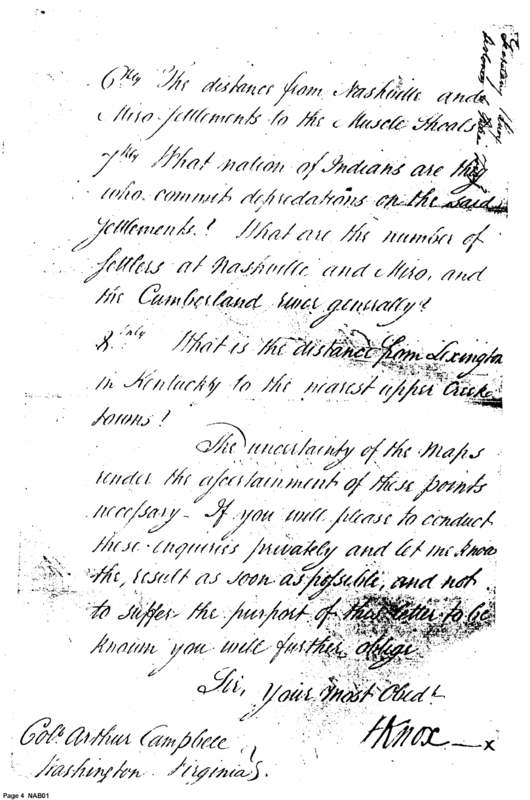 6thly The distance from Nashville and
Miro Settlements to the Muscle Shoals
7thly What nation of Indians are they
who commit depredations on the said
Settlements? What are the number of
Settlers at Nashville and Miro, and
the Cumberland river generally?
8thly What is the distance from Lexington
in Kentucky to the nearest upper Creek
towns?
The uncertainty of the Maps
render the ascertainment of these points
necessary - If you will please to conduct
these enquiries privately and let me know
the result as soon as possible, and not
to suffer the purport of this letter to be
known you will further oblige
Sir, Your Most Obedt
HKnox
Colo. Arthur Campbell
Washington Virginia
Page 4 NAB01